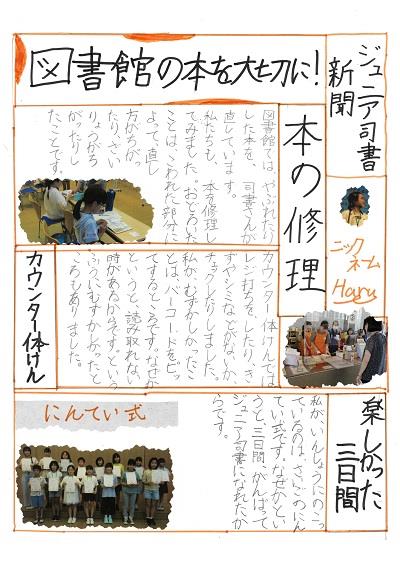 ジュニア司書
新聞
図書館の本を大切に!
ニック
ネーム
Haru
本の修理
図書館では、やぶれたり
した本を、司書さんが
直しています。
私たちも、本を修理し
てみました。おどろいた
ことは、こわれた部分に
よって、直し
方がちがっ
たり、ざい
りょうがち
がったりし
たことです。
カウンター体けん
カウンター体けんでは
レジ打ちをしたり、き
ずやシミなどがないか
チェックしたりしました。
私が、むずかしかったこ
とは、バーコードをピッ
てするところです。なぜか
というと、読み取れない
時があるからです。という
ふうにむずかしかったと
ころもありました。
楽しかった
三日間
私が、いんしょうにのこっ
ているのは、さいごのにん
てい式です。なぜかとい
うと、三日間、がんばって
ジュニア司書になれたか
らです。
にんてい式